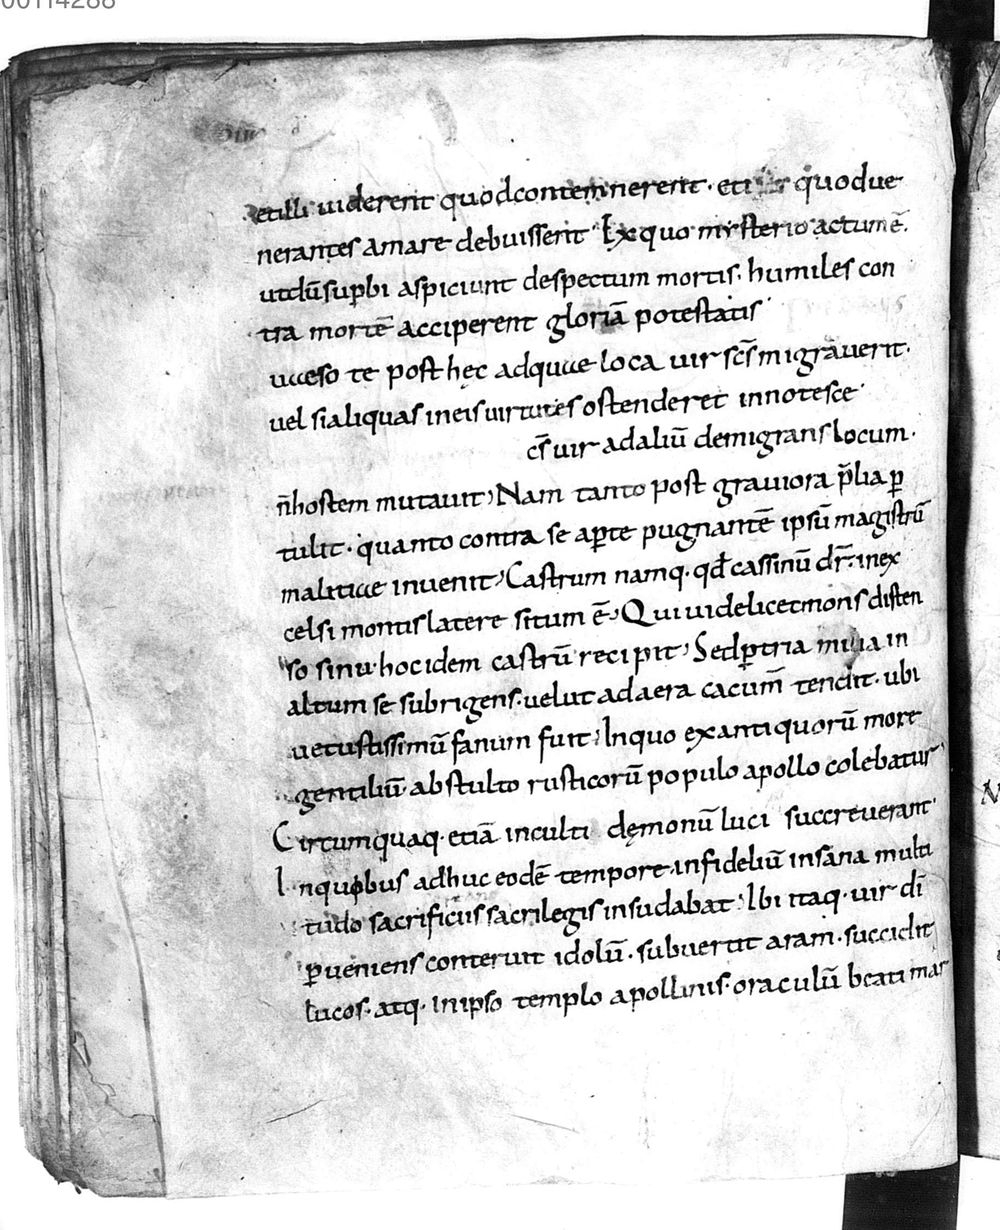 00114288
et illi uiderent quod contemnerent · et quod ue
nerantes amare debuissent Ex quo mysterio actum ē.
ut dū sup̄bi aspiciunt despectum mortis · humiles con
tra mortē acciperent gloriā potestatis
uaeso te post hęc ad quae loca uir sc̄s migrauerit.
uel si aliquas in eis uirtutes ostenderet innotesce
c̄s uir ad aliū demigrans locum.
n̄ hostem mutauit Nam tanto post grauiora p̄lia ꝑ
tulit · quanto contra se aꝑte pugnantē ipsū magistrū
malitiae inuenit Castrum namq · qd̄ cassinū dr̄ · in ex
celsi montis latere situm ē Qui uidelicet mons disten
so sinu · hoc idem castrū recipit Sed ꝑ tria milia in
altum se subrigens · uelut ad aera cacum̄ tendit · ubi
uetustissimū fanum fuit In quo ex antiquorū more
gentiliū ab stulto rusticorū populo apollo colebatur
Circumquaq · etiā in culti dęmonū luci succreuerant
In quobus adhuc eodē tempore infideliū insana multi
tudo sacrificiis sacrilegis insudabat Ibi itaq · uir dī
ꝑueniens conteruit idolū · subuertit aram · succidit
lucos · atq · in ipso templo apollinis · oraculū beati mar